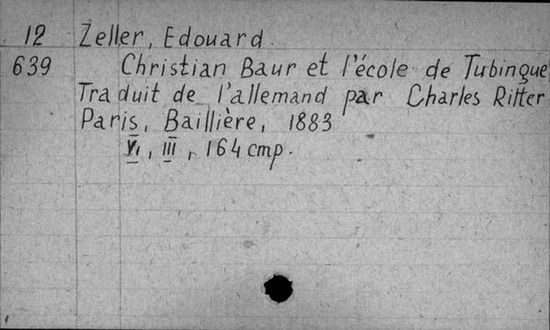 12 Zeller, Edouard.
639 Christian Baur et l'école de Tubingue
Traduit de l'allemand par Charles Ritter
Paris, Baillière, 1883
VI, III, 164 стр.